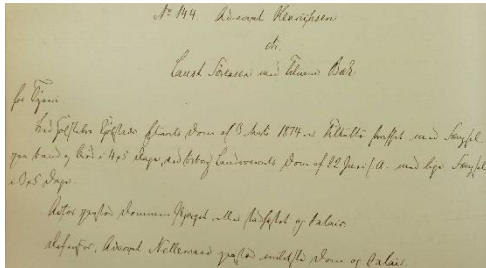 No 144. Advocat Henrichsen
ctr.
Laust Sörensen med Tilnavn Bak
for Tyveri
Ved Extrarets Dom af 3 Marts 1874 er Tiltalte straffet med Fængsel
paa Vand og Bröd i 4x5 Dage, ved Viborg Landsoverrets Dom af 22 Juni s. A. med lige Fængsel
i 3x5 Dage.
Actor paastod Dommen skjærpet eller stadfæstet og Salair.
Defensor, Advocat Nellemann paastod mildeste Dom og Salair.